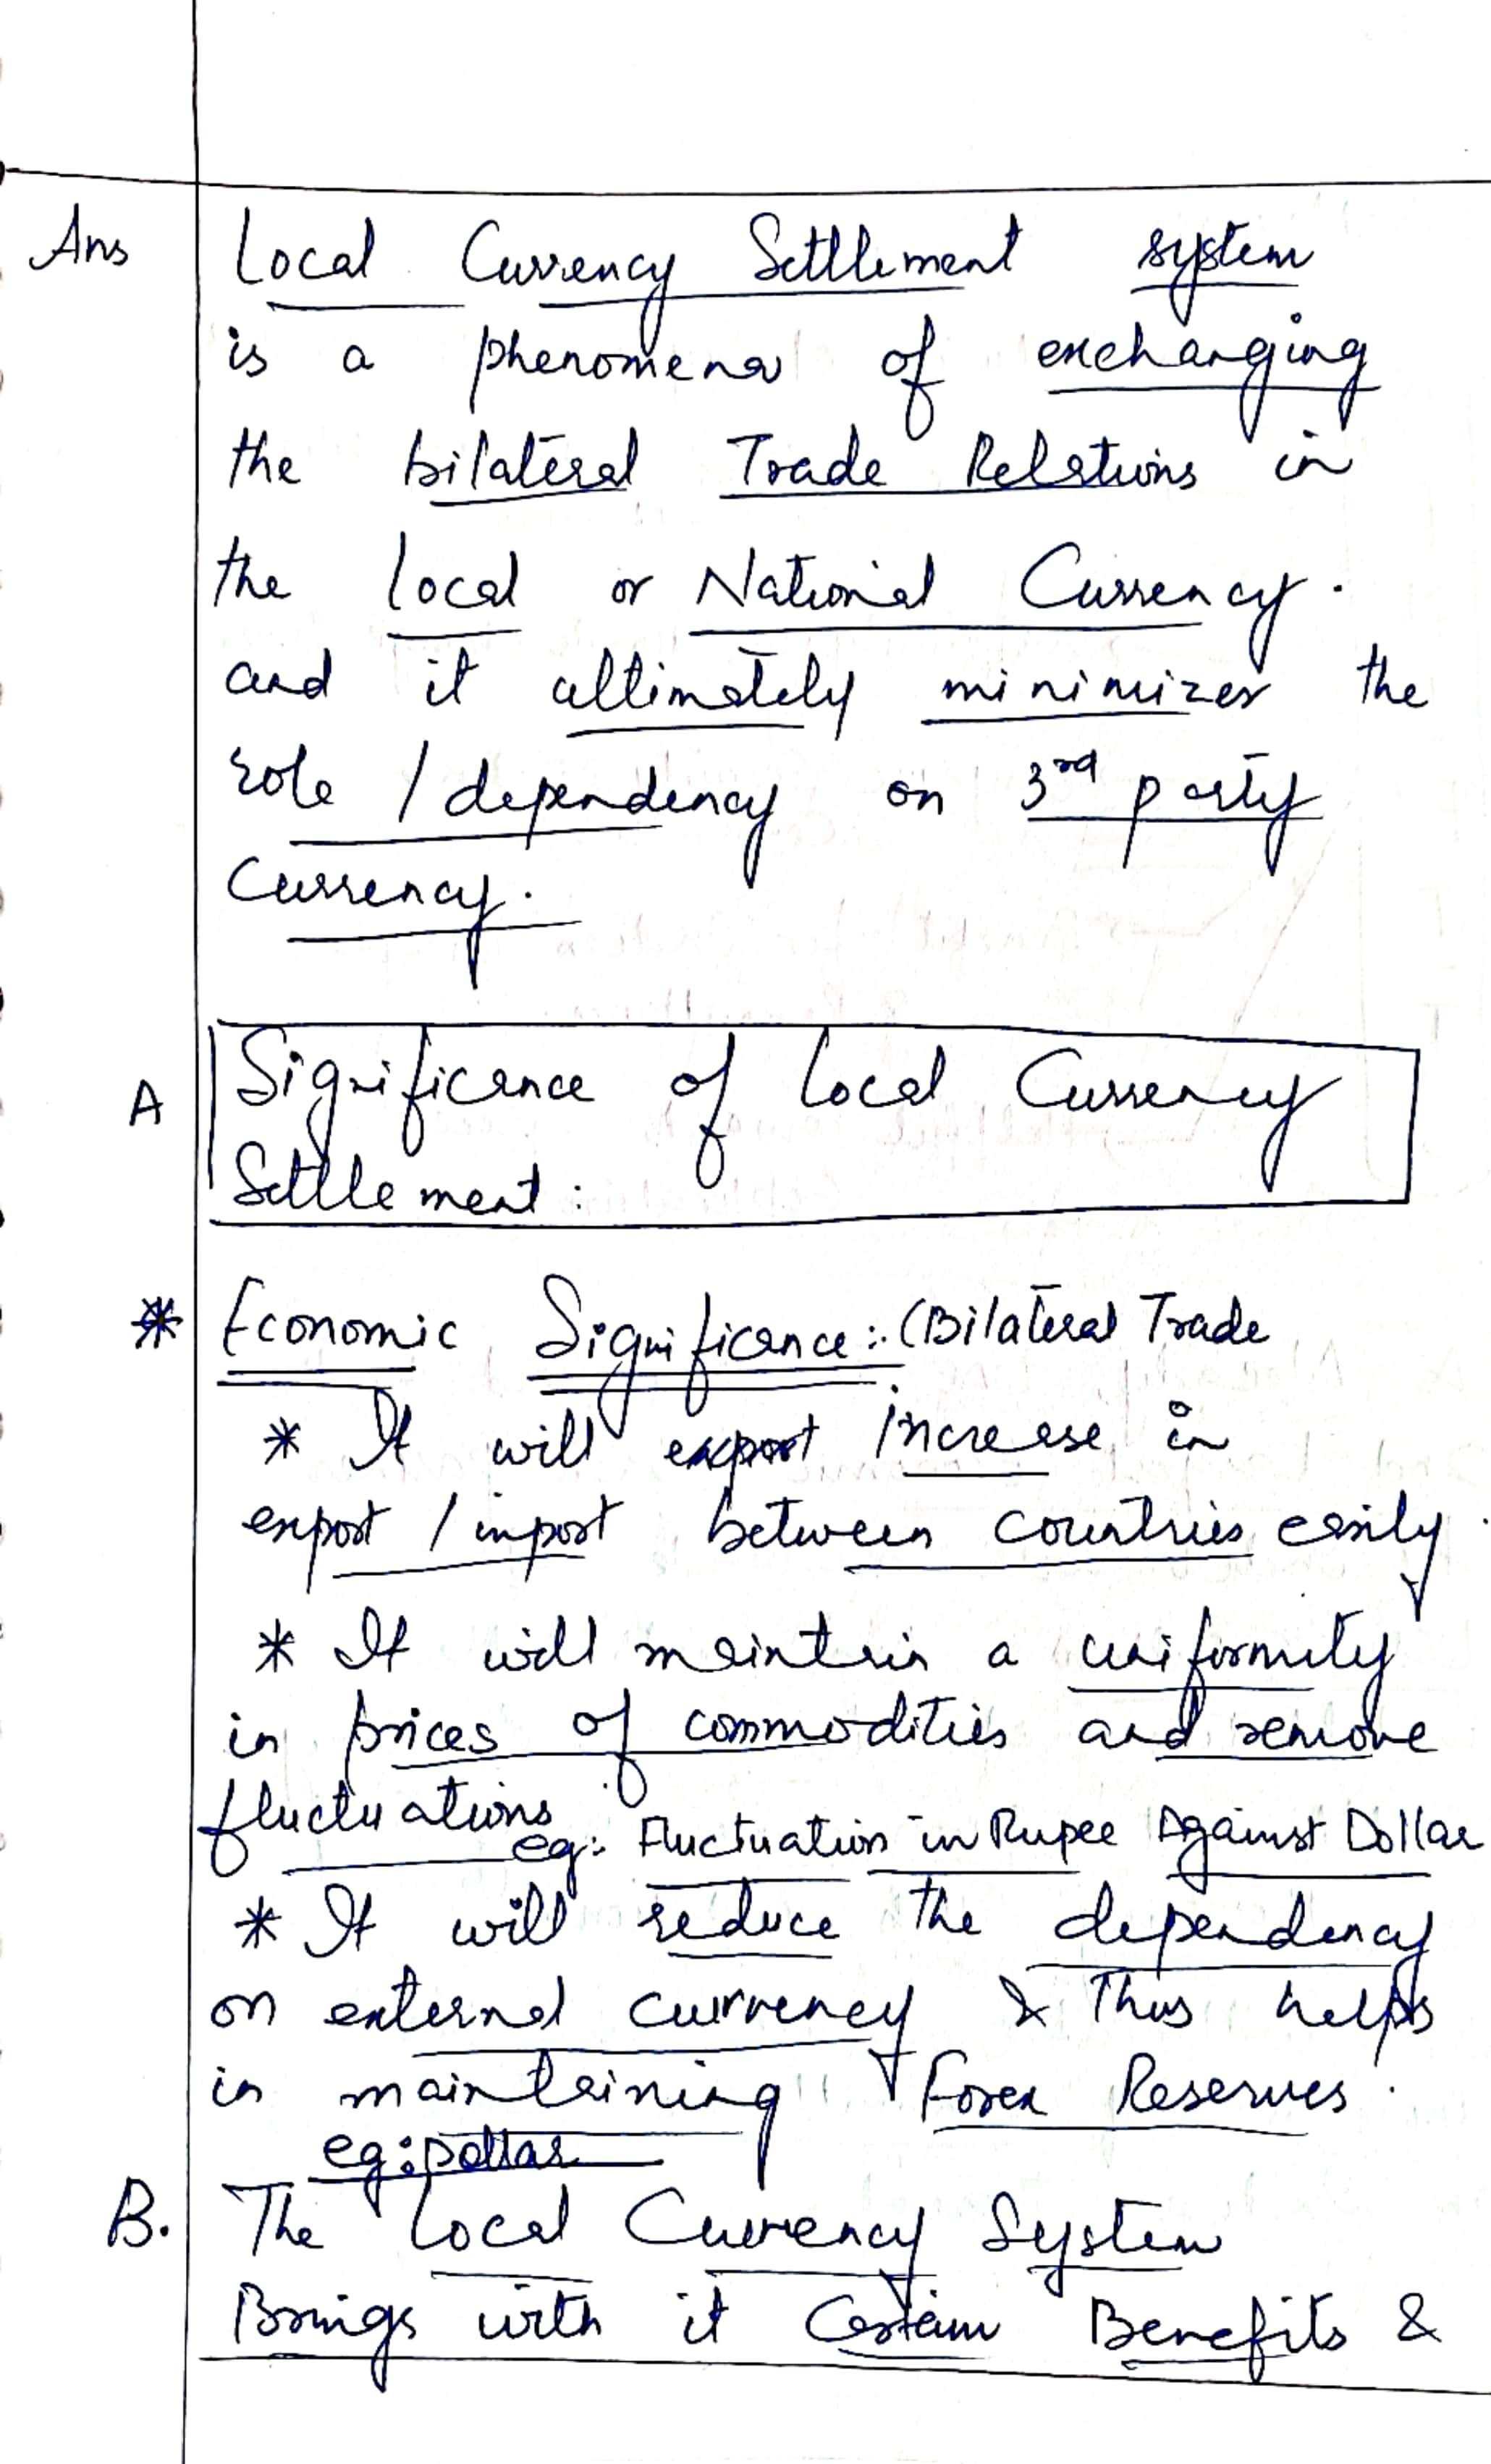 Ans Local Currency Settlement system
is a phenomena of exchanging
the bilateral Trade Relations in
the local or National Currency.
and it ultimately minimizes the
role / dependency on 3rd party
Currency.
A Significance of Local Currency
Settlement:
* Economic Significance:- (Bilateral Trade
* It will export increase in
export / import between countries easily.
* It will maintain a uniformity
in prices of commodities and remove
fluctuations eg: Fluctuation in Rupee Against Dollar
* It will reduce the dependency
on external currency & Thus helps
in maintaining Forex Reserves.
eg: Dollar
B. The Local Currency System
Brings with it Certain Benefits &